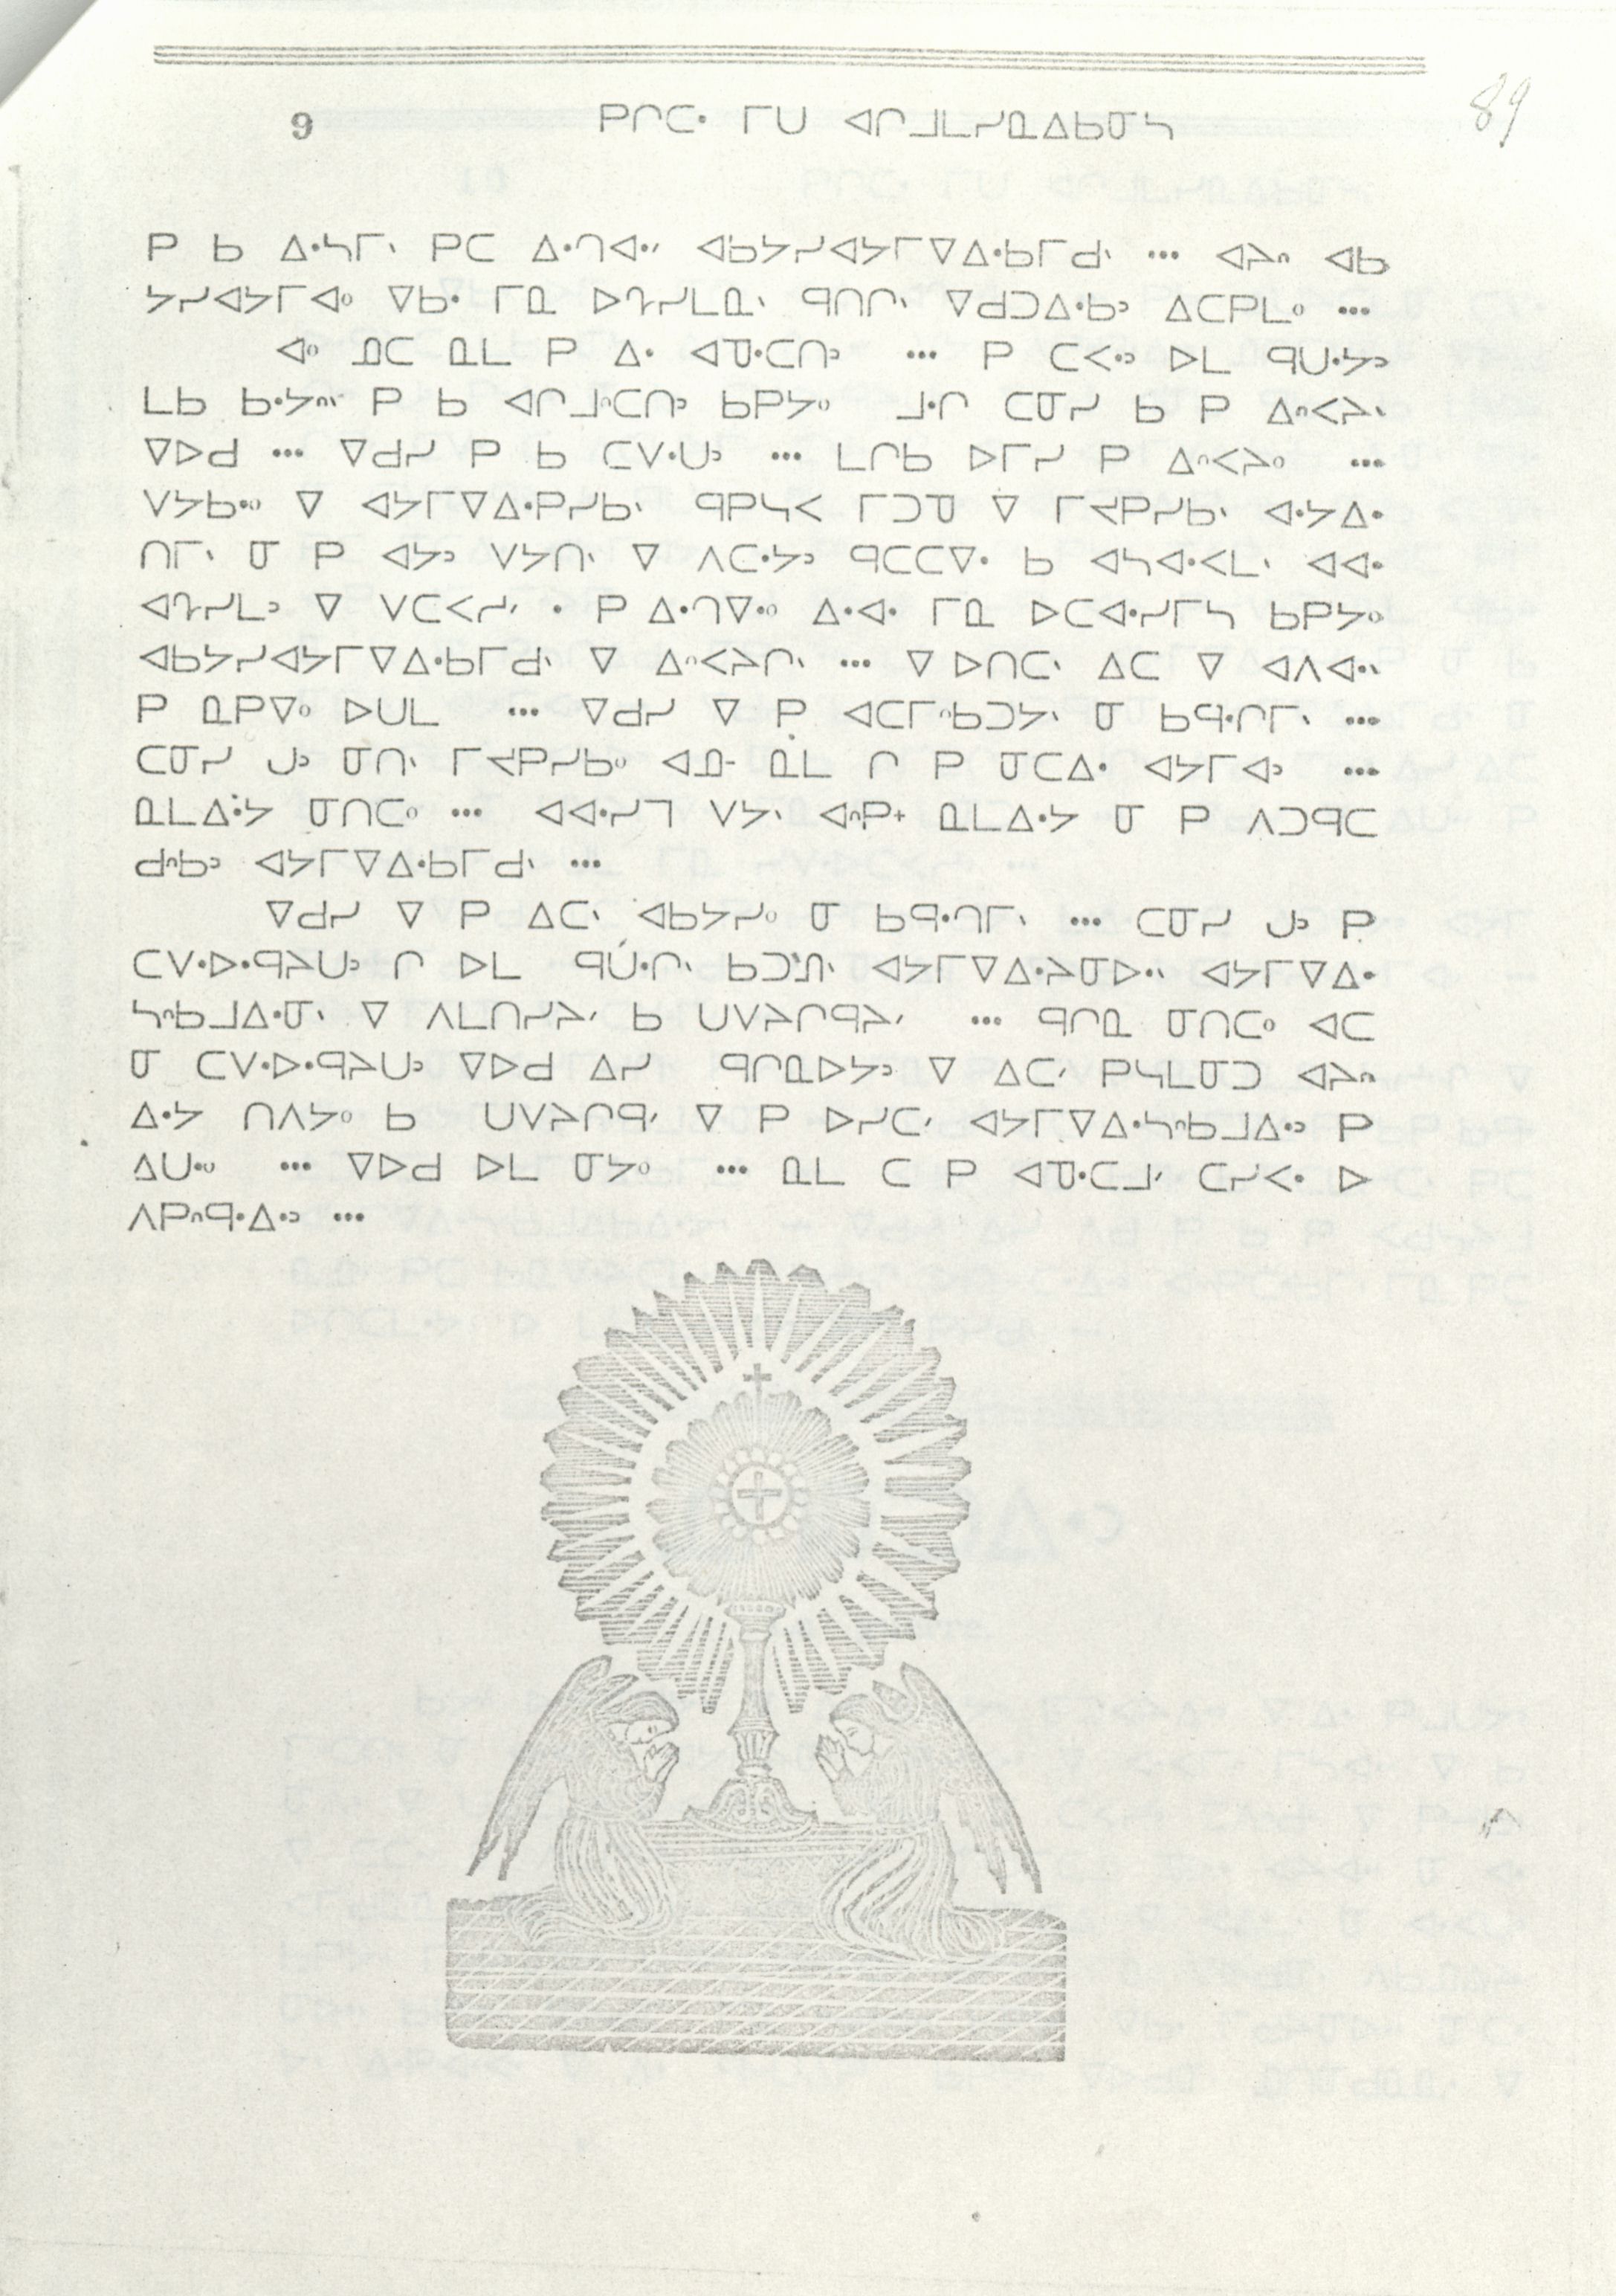 9 ᑭᒋᑕᐧ ᒥᑌ ᐊᒋᒧᒪᓯᓇᐃᑲᓂᓴ 89
ᑭ ᑲ ᐃᐧᓴᒥᐠ ᑭᑕ ᐃᐧᒋᐊᐧᐠ ᐊᑲᔭᓯᐊᔭᒥᐁᐃᐧᑲᒥᑯᐠ ... ᐊᔨᐢ ᐊᑲ
ᔭᓯᐊᔭᒥᐊᐤ ᐁᑲᐧ ᒥᓇ ᐅᒋᓯᒪᓇᐠ ᑫᑎᒋᐠ ᐁᑯᑐᐃᐧᑲᐣ ᐃᑕᑭᒪᐤ ...
ᐊᐤ ᓄᑕ ᓇᒪ ᑭ ᐃᐧ ᐊᓀᐧᑕᑎᐣ ... ᑭ ᑕᐸᐧᐣ ᐅᒪ ᑫᑌᐧᔭᐣ
ᒪᑲ ᑲᐧᔭᐢᐠ ᑭ ᑲ ᐊᒋᒧᐢᑕᑎᐣ ᑲᑭᔭᐤ ᒧᐧᒋ ᑕᓂᓯ ᑲ ᑭ ᐃᐢᐸᔨᐠ
ᐁᐅᑯ ... ᐁᑯᓯ ᑭ ᑲ ᑕᐯᐧᑌᐣ ... ᒪᒋᑲ ᐅᒥᓯ ᑭ ᐃᐢᐸᔨᐤ ...
ᐯᔭᑲᐧᐤ ᐁ ᐊᔭᒥᐁᐃᐧᑭᓯᑲᐠ ᑫᑭᓴᐸ ᒥᑐᓀ ᐁ ᒥᔪᑭᓯᑲᐠ ᐊᐧᔭᐃᐧ
ᑎᒥᐠ ᓂ ᑭ ᐊᔭᐣ ᐯᔭᑎᐠ ᐁ ᐱᑕᐧᔭᐣ ᑫᑕᑕᐁᐧ ᑲ ᐊᓴᐊᐧᐸᒪᐠ ᐊᐊᐧ
ᐊᒋᓯᒪᐣ ᐁ ᐯᑕᐸᓯᐟ ᐧ ᑭ ᐃᐧᒋᐁᐧᐤ ᐃᐧᐊᐧ ᒥᓇ ᐅᑕᐊᐧᓯᒥᓴ ᑲᑭᔭᐤ
ᐊᑲᔭᓯᐊᔭᒥᐁᐃᐧᑲᒥᑯᐠ ᐁ ᐃᐢᐸᔨᒋᐠ ... ᐁ ᐅᑎᑕᐠ ᐃᑕ ᐁ ᐊᐱᐊᐧᐠ
ᑭ ᓇᑭᐁᐤ ᐅᑌᒪ ... ᐁᑯᓯ ᐁ ᑭ ᐊᑕᒥᐢᑲᑐᔭᐠ ᓂ ᑲᑫᐧᒋᒥᐠ ...
ᑕᓂᓯ ᒍᐣ ᓂᑎᐠ ᒥᔪᑭᓯᑲᐤ ᐊᓄᐨ ᓇᒪ ᒋ ᑭ ᓂᑕᐃᐧ ᐊᔭᒥᐊᐣ ...
ᓇᒪᐃᐧᔭ ᓂᑎᑕᐤ ... ᐊᐊᐧᓯᒣ ᐯᔭᐠ ᐊᐢᑭᐩ ᓇᒪᐃᐧᔭ ᓂ ᑭ ᐱᑐᑫᑕ
ᑯᐢᑲᐣ ᐊᔭᒥᐁᐃᐧᑲᒥᑯᐠ ...
ᐁᑯᓯ ᐁ ᑭ ᐃᑕᐠ ᐊᑲᔭᓯᐤ ᓂ ᑲᑫᐧᒋᒥᐠ ... ᑕᓂᓯ ᒍᐣ ᑭ
ᑕᐯᐧᐅᐧᑫᔨᑌᐣ ᒋ ᐅᒪ ᑫᑌᐧᒋᐠ ᑲᑐᓕᐠ ᐊᔭᒥᐁᐃᐧᔨᓂᐅᐧᐠ ᐊᔭᒥᐁᐃᐧ
ᓴᐢᑲᒧᐃᐧᓂᐠ ᐁ ᐱᒪᑎᓯᔨᐟ ᑲ ᑌᐯᔨᒋᑫᔨᐟ ... ᑫᒋᓇ ᓂᑎᑕᐤ ᐊᑕ
ᓂ ᑕᐯᐧᐅᐧᑫᔨᑌᐣ ᐁᐅᑯ ᐃᓯ ᑫᒋᓇᐅᔭᐣ ᐁ ᐃᑕᐟ ᑭᓴᒪᓂᑐ ᐊᔨᐢ
ᐃᐧᔭ ᑎᐱᔭᐤ ᑲ ᑌᐯᔨᒋᑫᐟ ᐁ ᑭ ᐅᓯᑕᐟ ᐊᔭᒥᐁᐃᐧᓴᐢᑲᒧᐃᐧᐣ ᑭ
ᐃᑌᐧᐤ ... ᐁᐅᑯ ᐅᒪ ᓂᔭᐤ ... ᓇᒪ ᑕ ᑭ ᐊᓀᐧᑕᒧᐟ ᑕᓯᐸᐧ ᐅ
ᐱᑭᐢᑫᐧᐃᐧᐣ ...